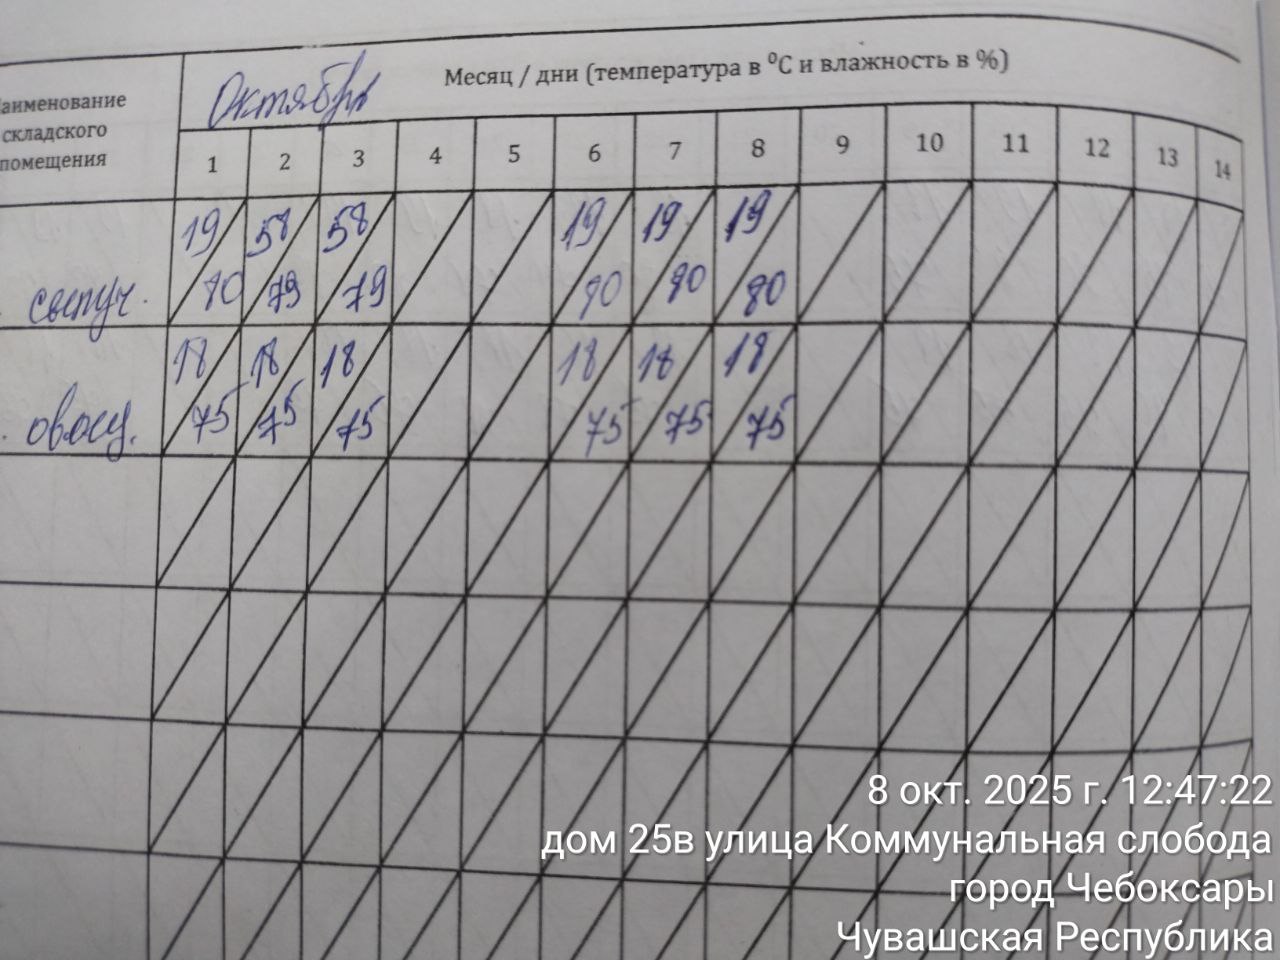 Наименование складского помещения
Октябрь
Месяц / дни (температура в ⁰С и влажность в %)
1 2 3 4 5 6 7 8 9 10 11 12 13 14
сыпуч.
19 58 58 19 19 19
80 79 79 80 80 80
овощ.
18 18 18 18 18 18
75 75 75 75 75 75
8 окт. 2025 г. 12:47:22
дом 25в улица Коммунальная слобода
город Чебоксары
Чувашская Республика